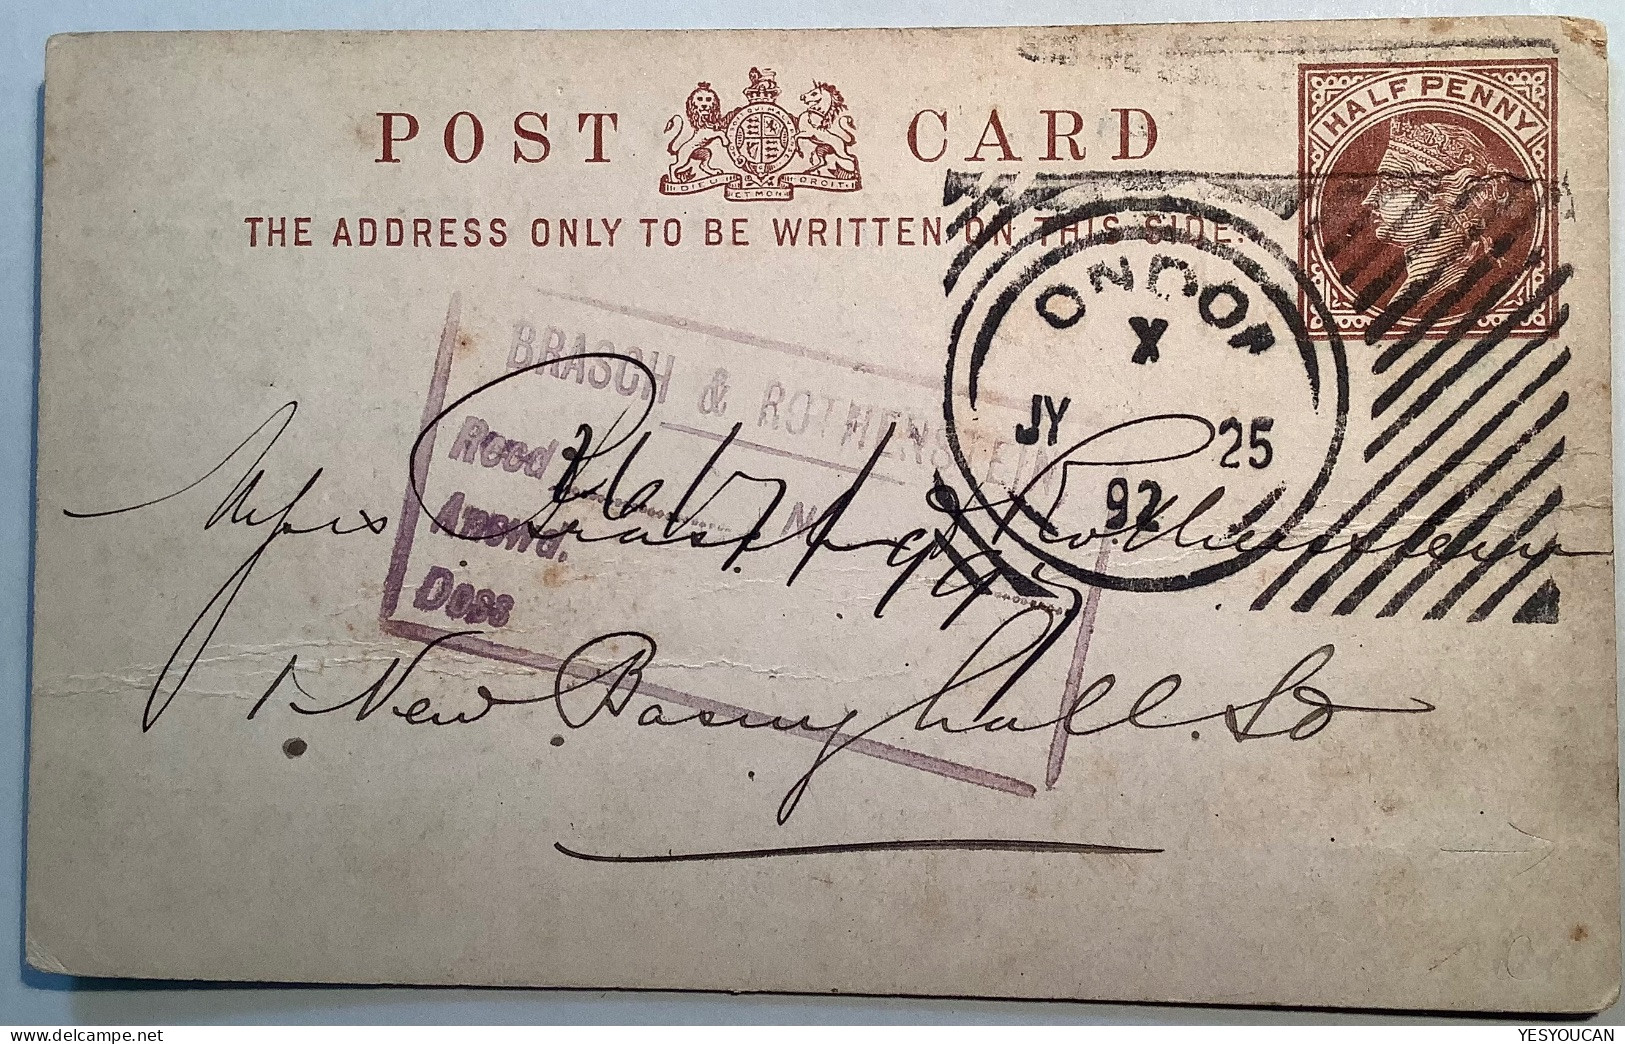 POST CARD
HALF PENNY
DIEU ET MON DROIT
THE ADDRESS ONLY TO BE WRITTEN ON THIS SIDE.
ONDON
X
JY 25
92
BRASCH & ROTHENSTEIN
Recd 26/7/92
Answd.
Doss
Messrs Brasch & Rothenstein
1 New Basinghall St
YESYOUCAN